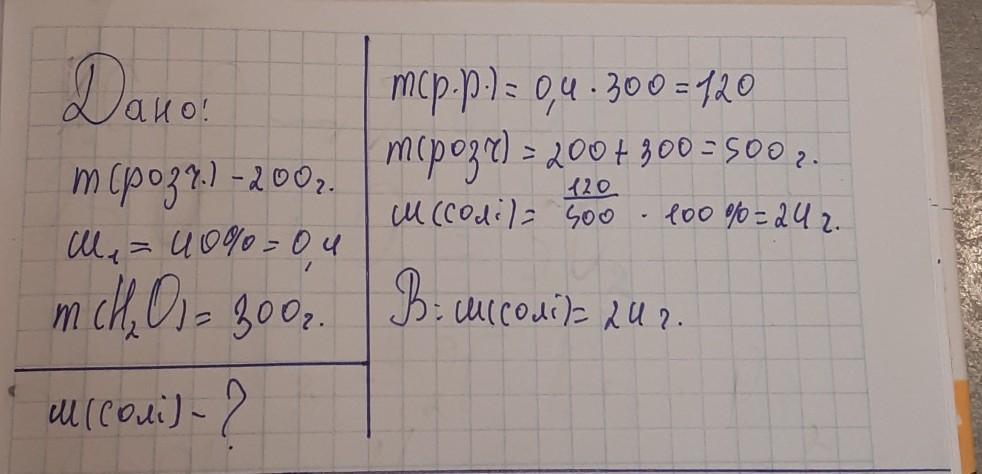 Дано:
m(розч.) - 200г.
ш₁ = 40% = 0,4
m(H₂O) = 300г.
ш(солі) - ?
m(р.р.) = 0,4 · 300 = 120
m(розч) = 200 + 300 = 500 г.
ш(солі) = 120/500 · 100 % = 24 г.
В: ш(солі) = 24 г.